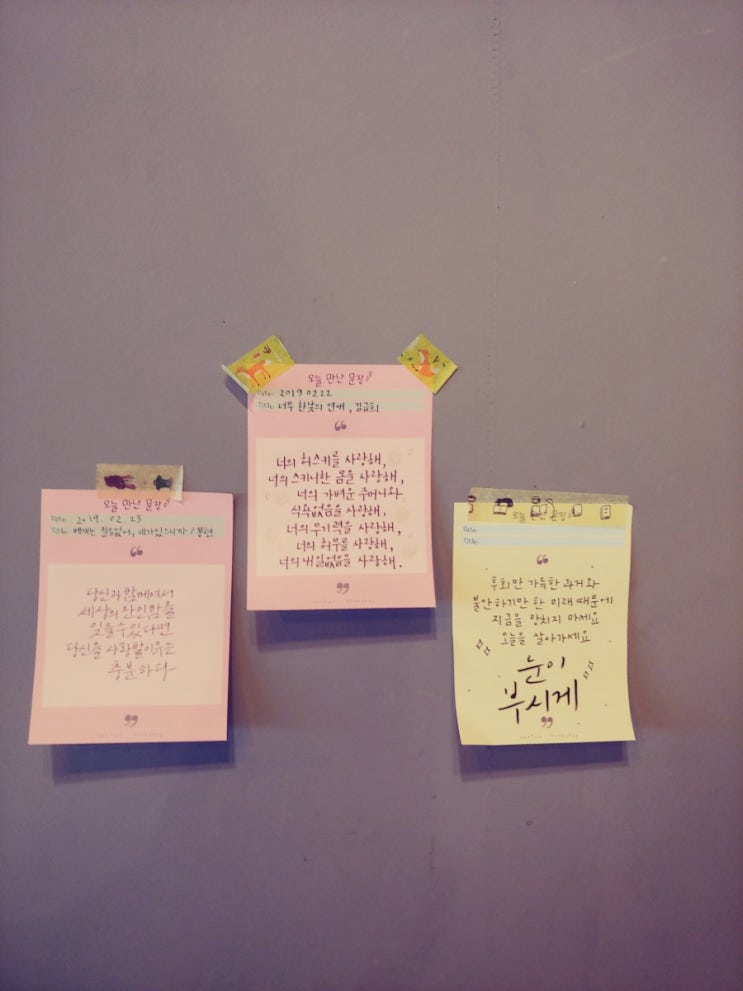 오늘 만난 문장
Date. 2019. 02. 23
Title.
❝
당신과 함께여서
세상의 잔인함을
잊을 수 있다면
당신을 사랑할 이유는
충분하다
❞
오늘 만난 문장
Date. 2019 02 22
Title. 너무 한낮의 연애, 김금희
❝
너의 허스키를 사랑해,
너의 스키니한 몸을 사랑해,
너의 가벼운 주머니와
식욕없음을 사랑해,
너의 무기력을 사랑해,
너의 허무를 사랑해,
너의 내일없음을 사랑해.
❞
오늘 만난 문장
Date.
Title.
❝
후회만 가득한 과거와
불안하기만 한 미래 때문에
지금을 망치지 마세요
오늘을 살아가세요
눈이
부시게
❞